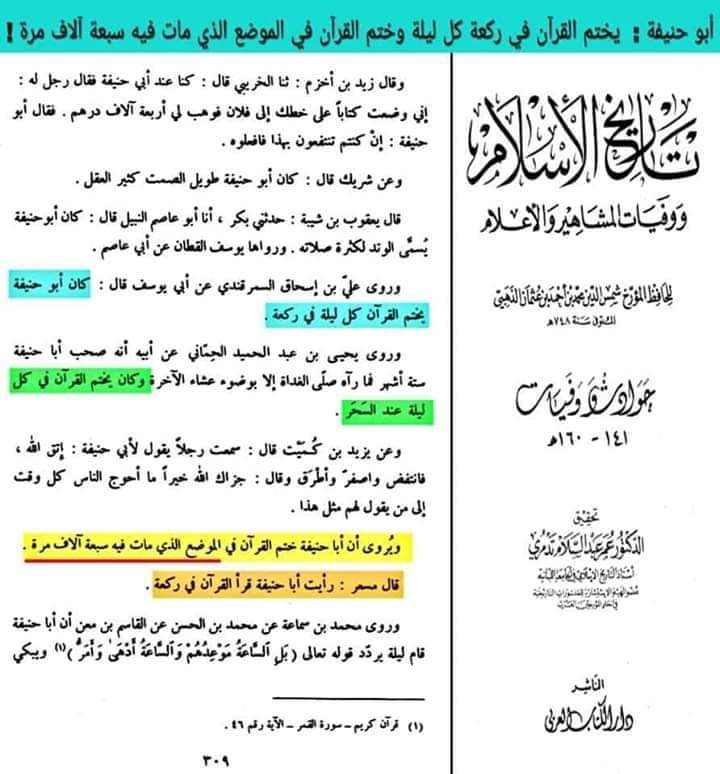 أبو حنيفة : يختم القرآن في ركعة كل ليلة وختم القرآن في الموضع الذي مات فيه سبعة آلاف مرة !
وقال زيد بن أخزم : ثنا الخريبي قال : كنا عند أبي حنيفة فقال رجل له :
إني وضعت كتاباً على خطك إلى فلان فوهب لي أربعة آلاف درهم . فقال أبو
حنيفة : إنْ كنتم تنتفعون بهذا فافعلوه .
وعن شريك قال : كان أبو حنيفة طويل الصمت كثير العقل .
قال يعقوب بن شيبة : حدثني بكر ، أنا أبو عاصم النبيل قال : كان أبوحنيفة
يُسمَّى الوتد لكثرة صلاته . ورواها يوسف القطان عن أبي عاصم .
وروى عليّ بن إسحاق السمرقندي عن أبي يوسف قال : كان أبو حنيفة
يختم القرآن كل ليلة في ركعة .
وروى يحيى بن عبد الحميد الحِمّاني عن أبيه أنه صحب أبا حنيفة
ستة أشهر فما رآه صلّى الغداة إلا بوضوء عشاء الآخرة وكان يختم القرآن في كل
ليلة عند السَحَر .
وعن يزيد بن كُمَيْت قال : سمعت رجلاً يقول لأبي حنيفة : إتق الله ،
فانتفض واصفرّ وأطْرَق وقال : جزاك الله خيراً ما أحوج الناس كل وقت
إلى من يقول لهم مثل هذا .
ويُروى أن أبا حنيفة ختم القرآن في الموضع الذي مات فيه سبعة آلاف مرة .
قال مسعر : رأيت أبا حنيفة قرأ القرآن في ركعة .
وروى محمد بن سماعة عن محمد بن الحسن عن القاسم بن معن أن أبا حنيفة
قام ليلة يردّد قوله تعالى ( بَلِ السَّاعَةُ مَوْعِدُهُمْ وَالسَّاعَةُ أَدْهَىٰ وَأَمَرُّ )(١) ويبكي
(١) قرآن كريم – سورة القمر – الآية رقم ٤٦ .
٣٠٩
تاريخ الإسلام
ووفيات المشاهير والأعلام
للحافظ المؤرخ شمس الدين محمد بن أحمد بن عثمان الذهبي
المتوفى سنة ٧٤٨هـ
حوادث ووفيات
١٤١ - ١٦٠هـ
تحقيق
الدكتور عمر عبد السلام تدمري
أستاذ التاريخ الإسلامي في الجامعة اللبنانية
الناشر
دار الكتاب العربي